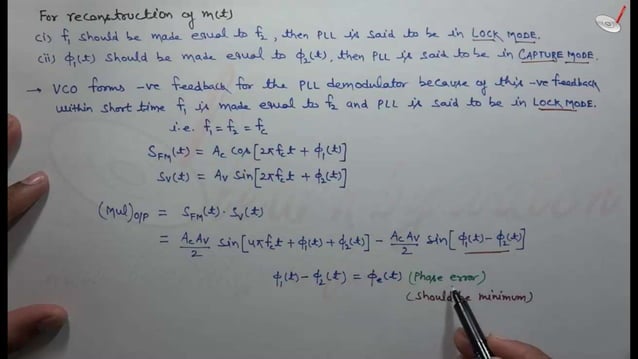 For reconstruction of m(t)
(i) f₁ should be made equal to f₂, then PLL is said to be in LOCK MODE.
(ii) ϕ₁(t) should be made equal to ϕ₂(t), then PLL is said to be in CAPTURE MODE.
→ VCO forms -ve feedback for the PLL demodulator because of this -ve feedback
within short time f₁ is made equal to f₂ and PLL is said to be in LOCK MODE.
i.e. f₁ = f₂ = f_c
S_FM(t) = A_c cos[2πf_c t + ϕ₁(t)]
S_V(t) = A_V sin[2πf_c t + ϕ₂(t)]
(Mul)_O/P = S_FM(t) · S_V(t)
= A_c A_V/2 sin[4πf_c t + ϕ₁(t) + ϕ₂(t)] - A_c A_V/2 sin[ϕ₁(t) - ϕ₂(t)]
ϕ₁(t) - ϕ₂(t) = ϕ_e(t) (Phase error)
(should be minimum)